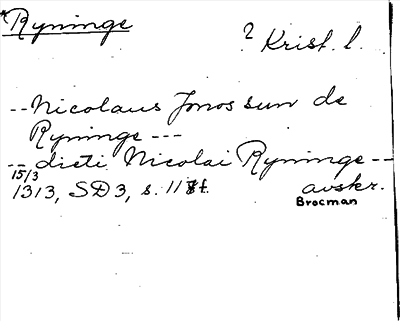 *Ryninge
? Krist. l.
-- Nicolaus Jonossun de
Ryninge ---
-- dicti Nicolai Ryninge --
15/3
1313, SD3, s. 117f. avskr.
Brocman